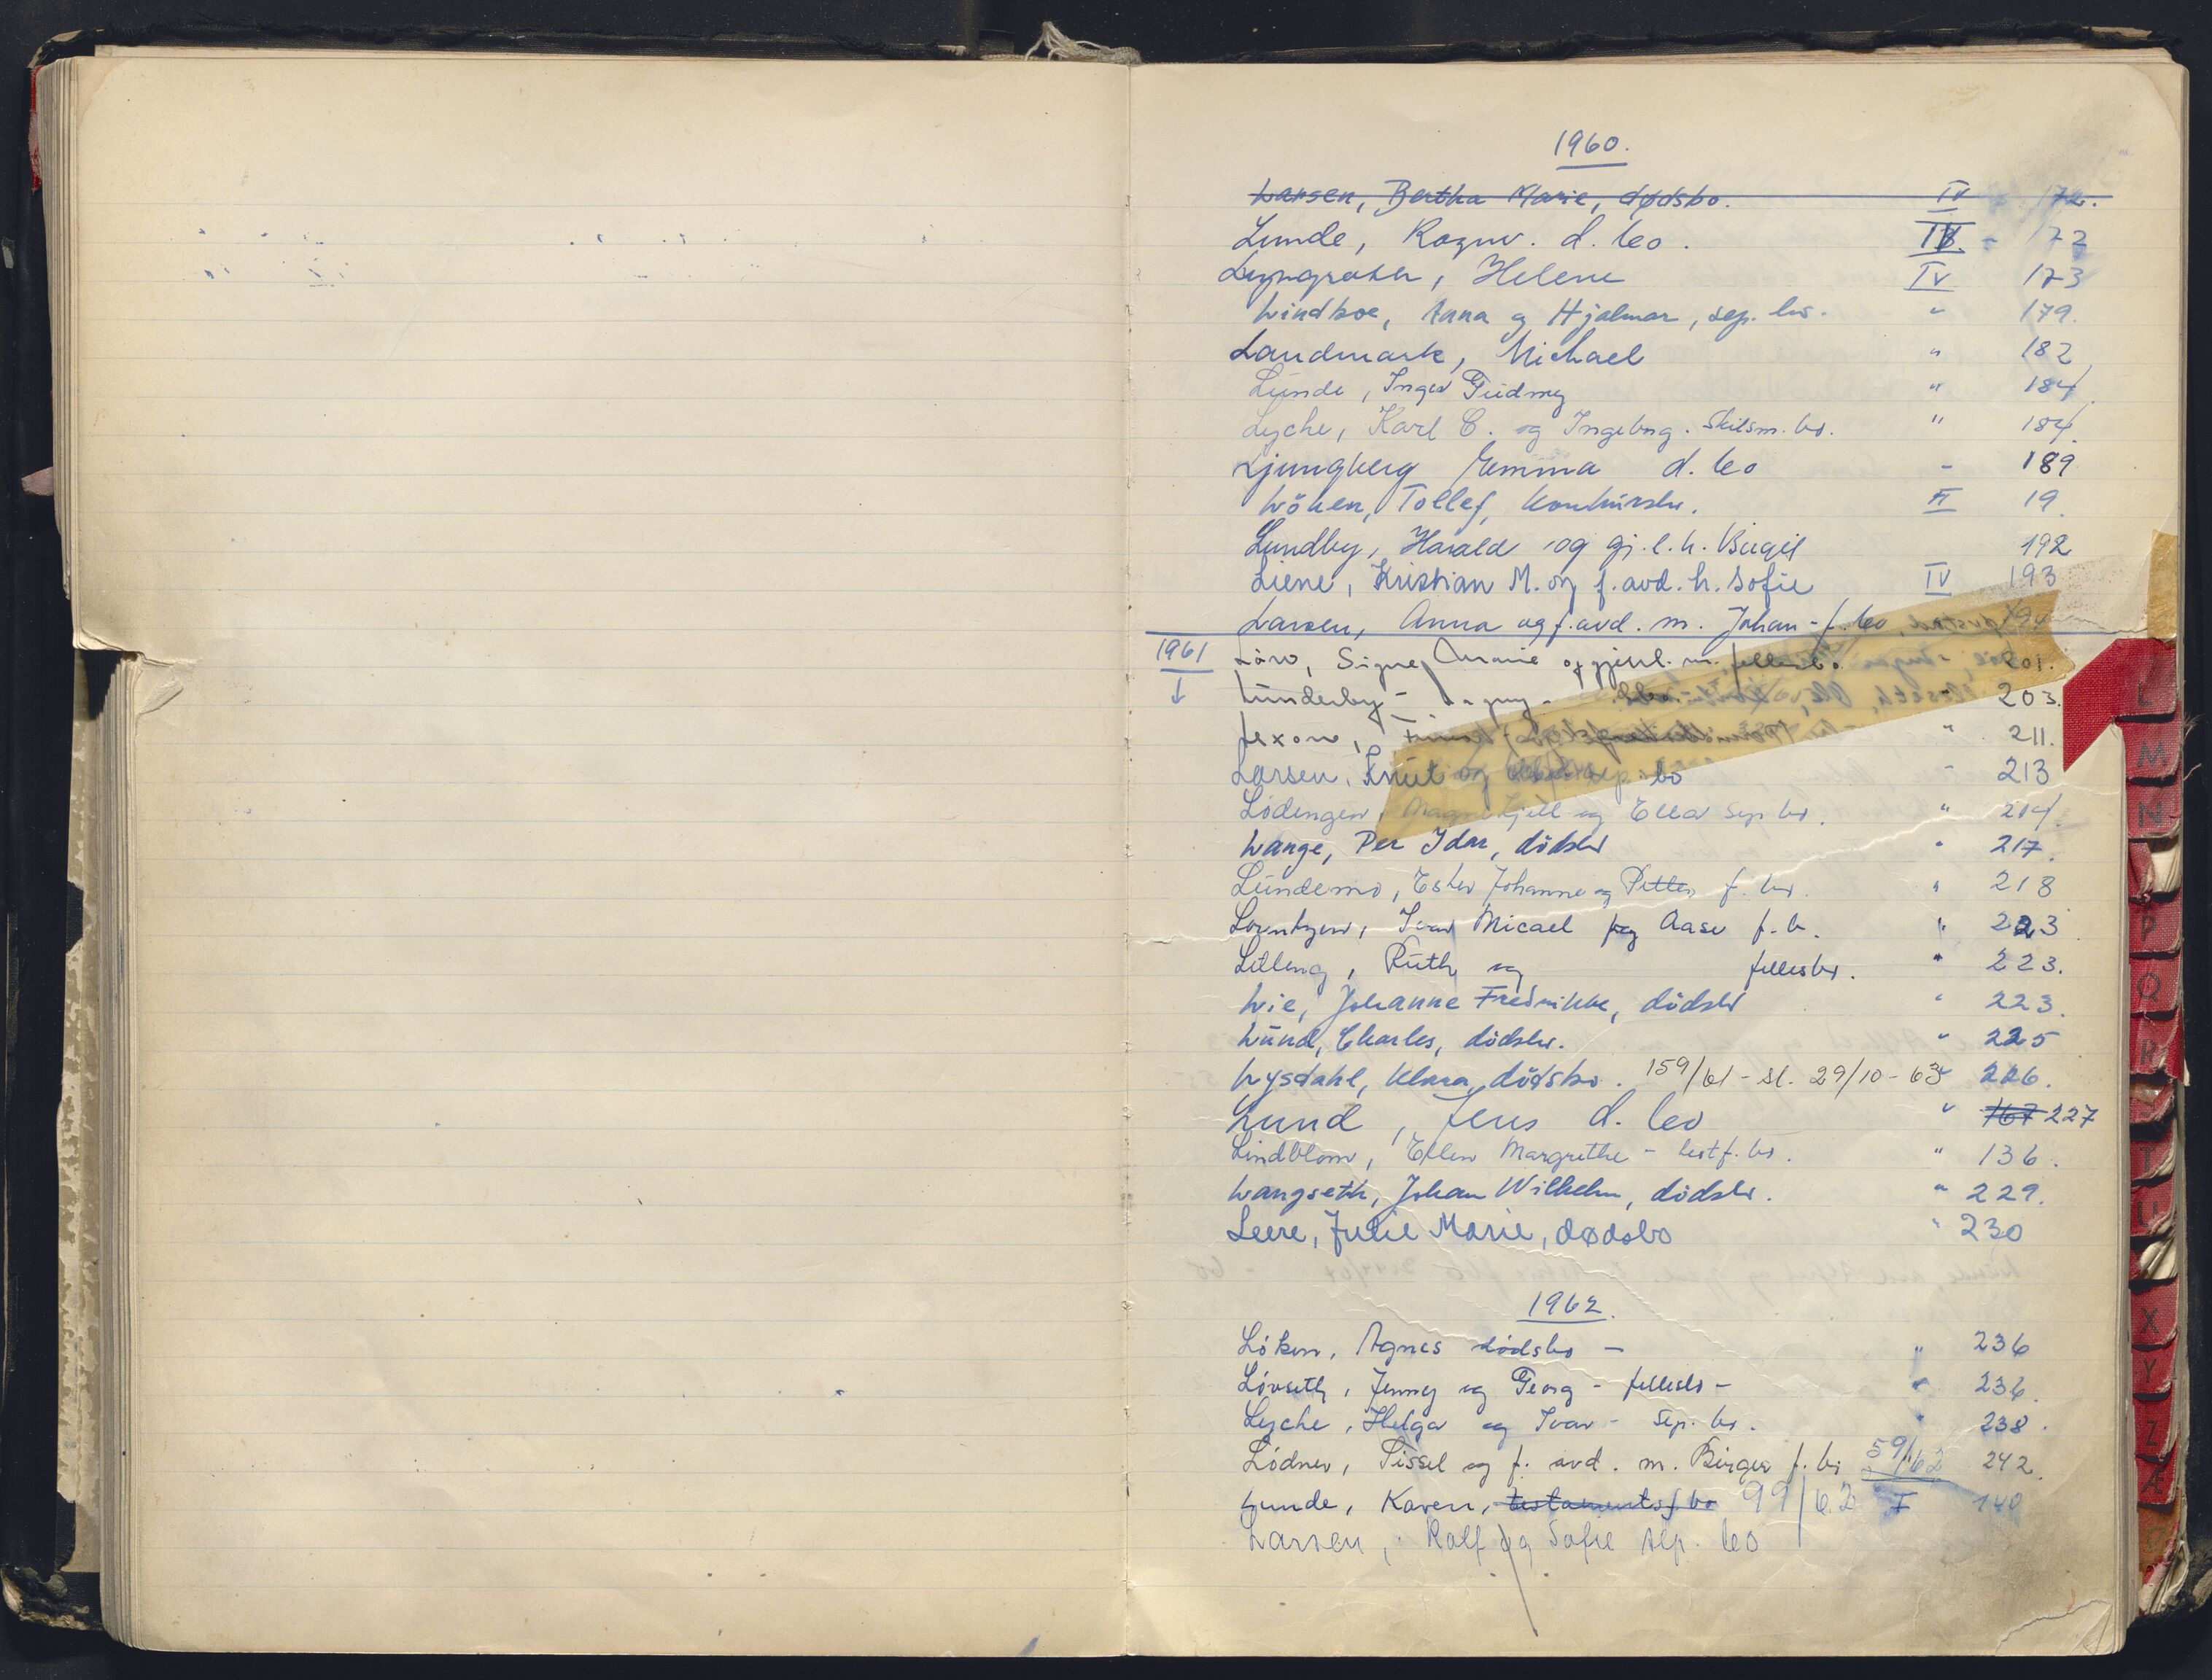 1960.
Larsen, Bertha Marie, dødsbo. IV 172.
Lunde, Ragnv. d. bo. IV - 172
Helene IV 173
Lindboe, Anna og Hjalmar, sep. bo. " 179.
Landmark, Michael " 182
Lunde, Inger Gudny " 184.
Lyche, Karl C. og Ingeborg. Skilsm. bo. " 184.
Ljungberg Emma d. bo - 189
Löken, Tollef, konkursbo. II 19.
Lundby, Harald og gj.l.h. Birgit 192
Liene, Kristian M. og f.avd. h. Sofie IV 193
Larsen, Anna og f.avd. m. Johan - f. bo 194
1961 Signe Marie og gjenl. m. fellesbo 201.
Lunderby - 203.
" 211.
Larsen, Knut og sep. bo - 213
Lödingen, Magne Kjell og Ella Sep. bo. " 214.
Lange, Per Idar, dödsbo " 217.
Lundemo, Ester Johanne og Petter f. bo. " 218
Lorentzen, Ivar Micael og Aase f. b. " 223.
Ruth og fellesbo. " 223.
Lie, Johanne Fredrikke, dödsbo " 223.
Lund, Charles, dödsbo. " 225
Lysdahl, Klara, dödsbo. 159/61 - sl. 29/10-63 " 226.
Lund, Jens d. bo " 167 227
Lindblom, Ellen Margrethe - test.f. bo. " 136.
Langseth, Johan Wilhelm, dödsbo. " 229.
Leere, Julie Marie, dødsbo " 230
1962.
Löken, Agnes dödsbo - " 236
Lövseth, Jenny og Georg - fellesbo - " 236.
Lyche, Helga og Ivar - Sep. bo. " 238.
Lödner, Sissel og f. avd. m. Birger f. bo 59/62 242.
Lunde, Karen, testamentsf.bo 99/62 I 140
Larsen, Rolf og Sofie sep. bo
L
M
N
P
Q
R
T
U
X
Y
Z
Æ